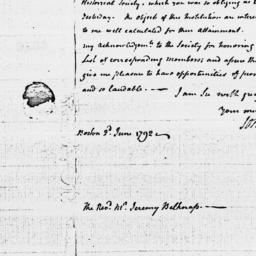 Historical Society, which you was so obliging as t
Yesterday. The objects of this Institution are interes
to me well calculated for their attainment.
my acknowledgmts. to the Society for honoring
List of corresponding members, and assure th
give me pleasure to have opportunities of pro
and so laudable. —
I am Sir with grea
Your mo
Boston 2d. June 1792
The Revd. Mr. Jeremy Belknap